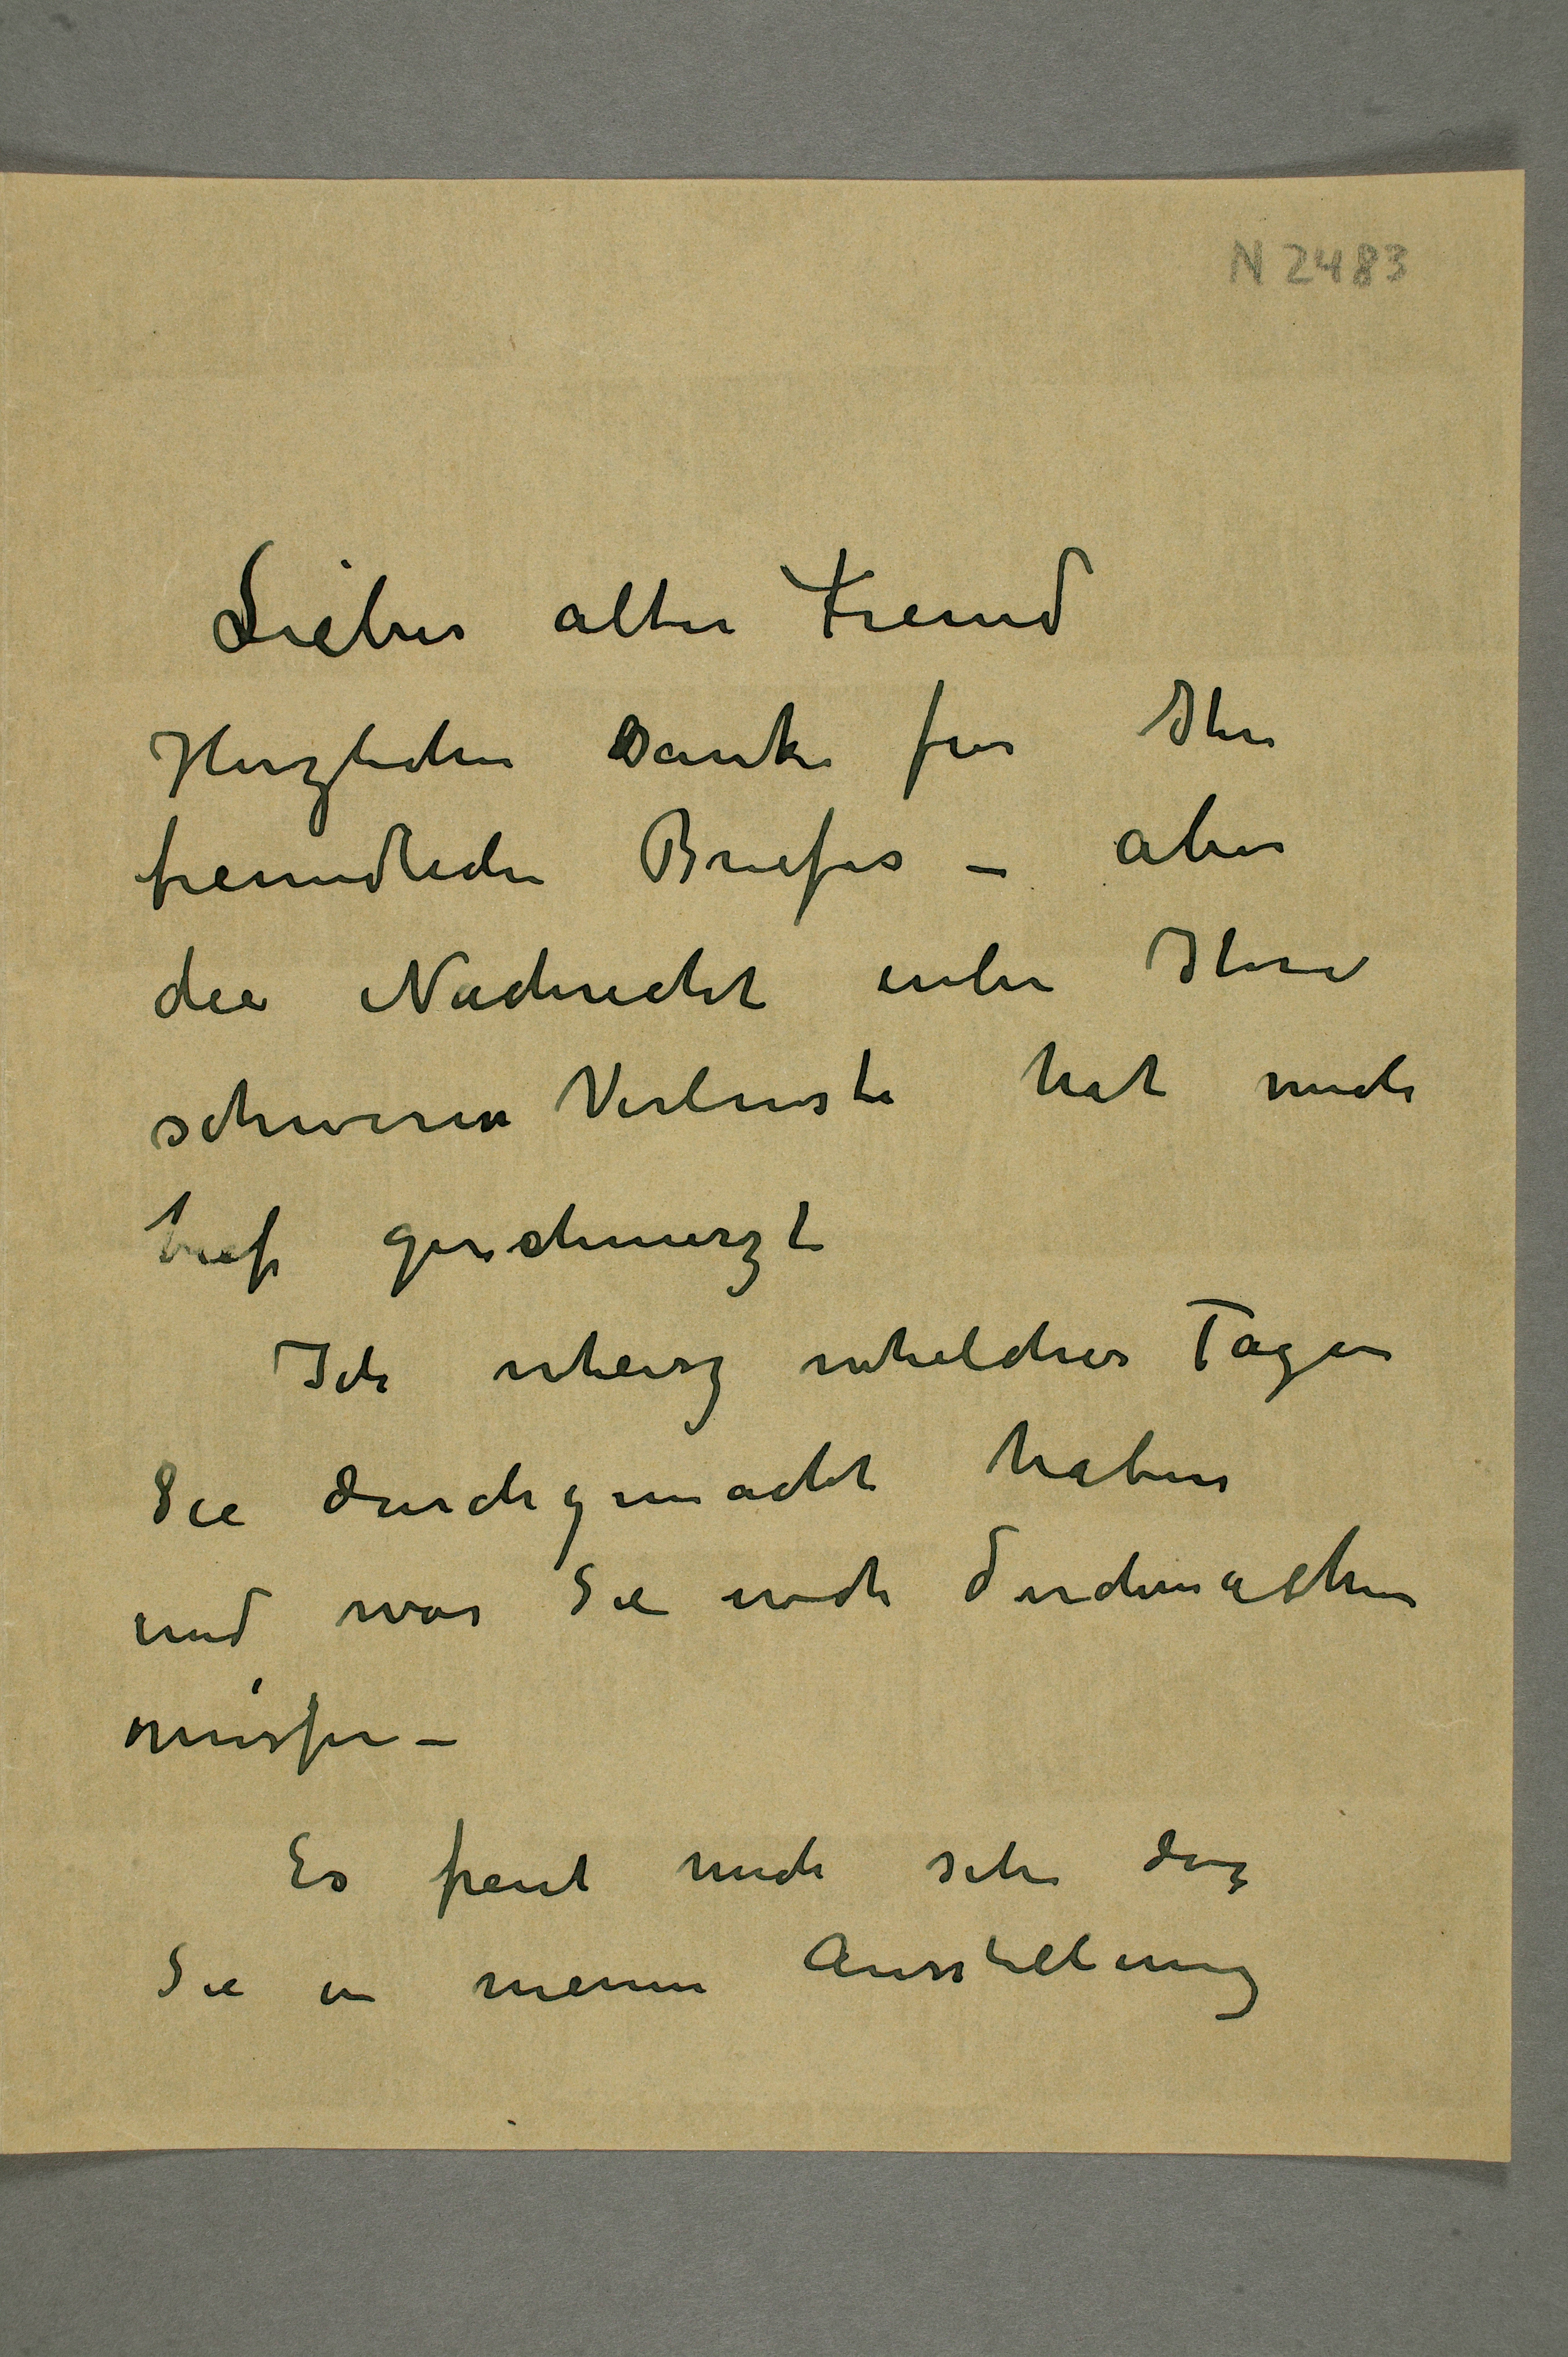 N 2483
Lieber alter Freund
Herzlichen Danke für Ihre
freundlichen Briefes – aber
die Nachricht über Ihre
schweren Verluste hat mich
tief geschmerzt
Ich weisz welcher Tagen
Sie durchgemacht haben
und was Sie noch durchmachen
müssen –
Es freut mich sehr dasz
Sie in meinen Ausstellung